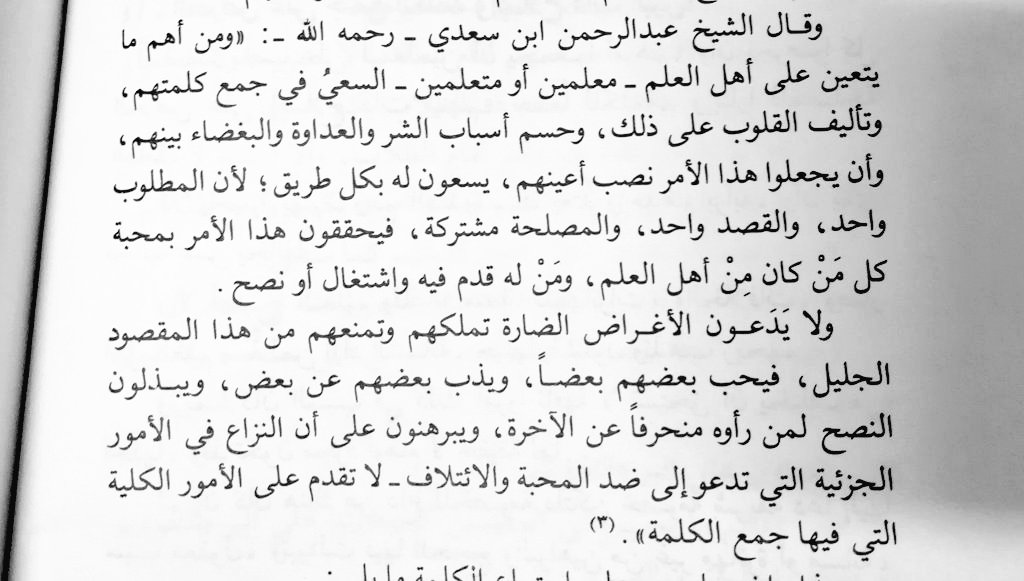 وقـال الشيخ عبدالرحمن ابن سعدي ـ رحمه الله ـ: «ومن أهم ما
يتعين على أهل العلم ـ معلمين أو متعلمين ـ السعيُ في جمع كلمتهم،
وتأليف القلوب على ذلك، وحسم أسباب الشر والعداوة والبغضاء بينهم،
وأن يجعلوا هذا الأمر نصب أعينهم، يسعون له بكل طريق؛ لأن المطلوب
واحد، والقصد واحد، والمصلحة مشتركة، فيحققون هذا الأمر بمحبة
كل مَنْ كان مِنْ أهل العلم، ومَنْ له قدم فيه واشتغال أو نصح.
ولا يَدَعـون الأغـراض الضارة تملكهم وتمنعهم من هذا المقصود
الجليل، فيحب بعضهم بعضـاً، ويذب بعضهم عن بعض، ويبـذلون
النصح لمن رأوه منحرفاً عن الآخرة، ويبرهنون على أن النزاع في الأمور
الجزئية التي تدعو إلى ضد المحبة والائتلاف ـ لا تقدم على الأمور الكلية
التي فيها جمع الكلمة». (٣)